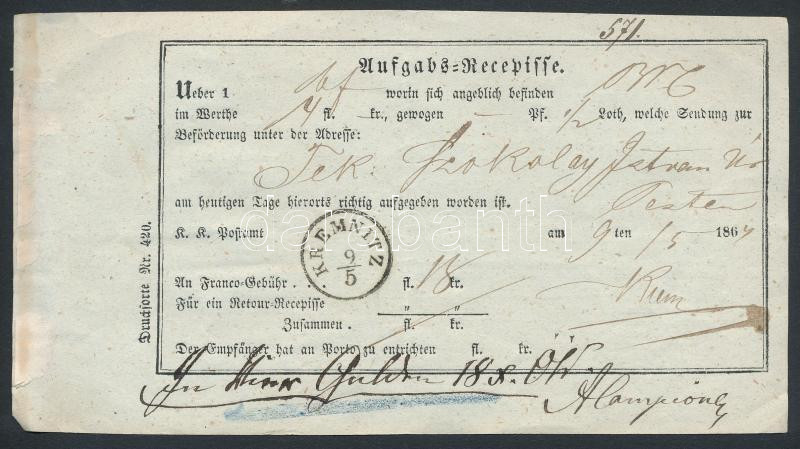 571.
Aufgabs=Recepisse.
Ueber 1 bf worin sich angeblich befinden
im Werthe 4 fl. — kr., gewogen — Pf. 1/2 Loth, welche Sendung zur
Beförderung unter der Adresse:
Tek. Szokolay Istvan Úr
Pesten
am heutigen Tage hierorts richtig aufgegeben worden ist.
K. K. Postamt am 9ten /5 186
KREMNITZ
9/5
An Franco=Gebühr . fl. 18 kr.
Für ein Retour=Recepisse „ „
Zusammen . fl. kr.
Der Empfänger hat an Porto zu entrichten fl. kr.
Drucksorte Nr. 420.
Gulden 18 x. ÖW.
darabanth